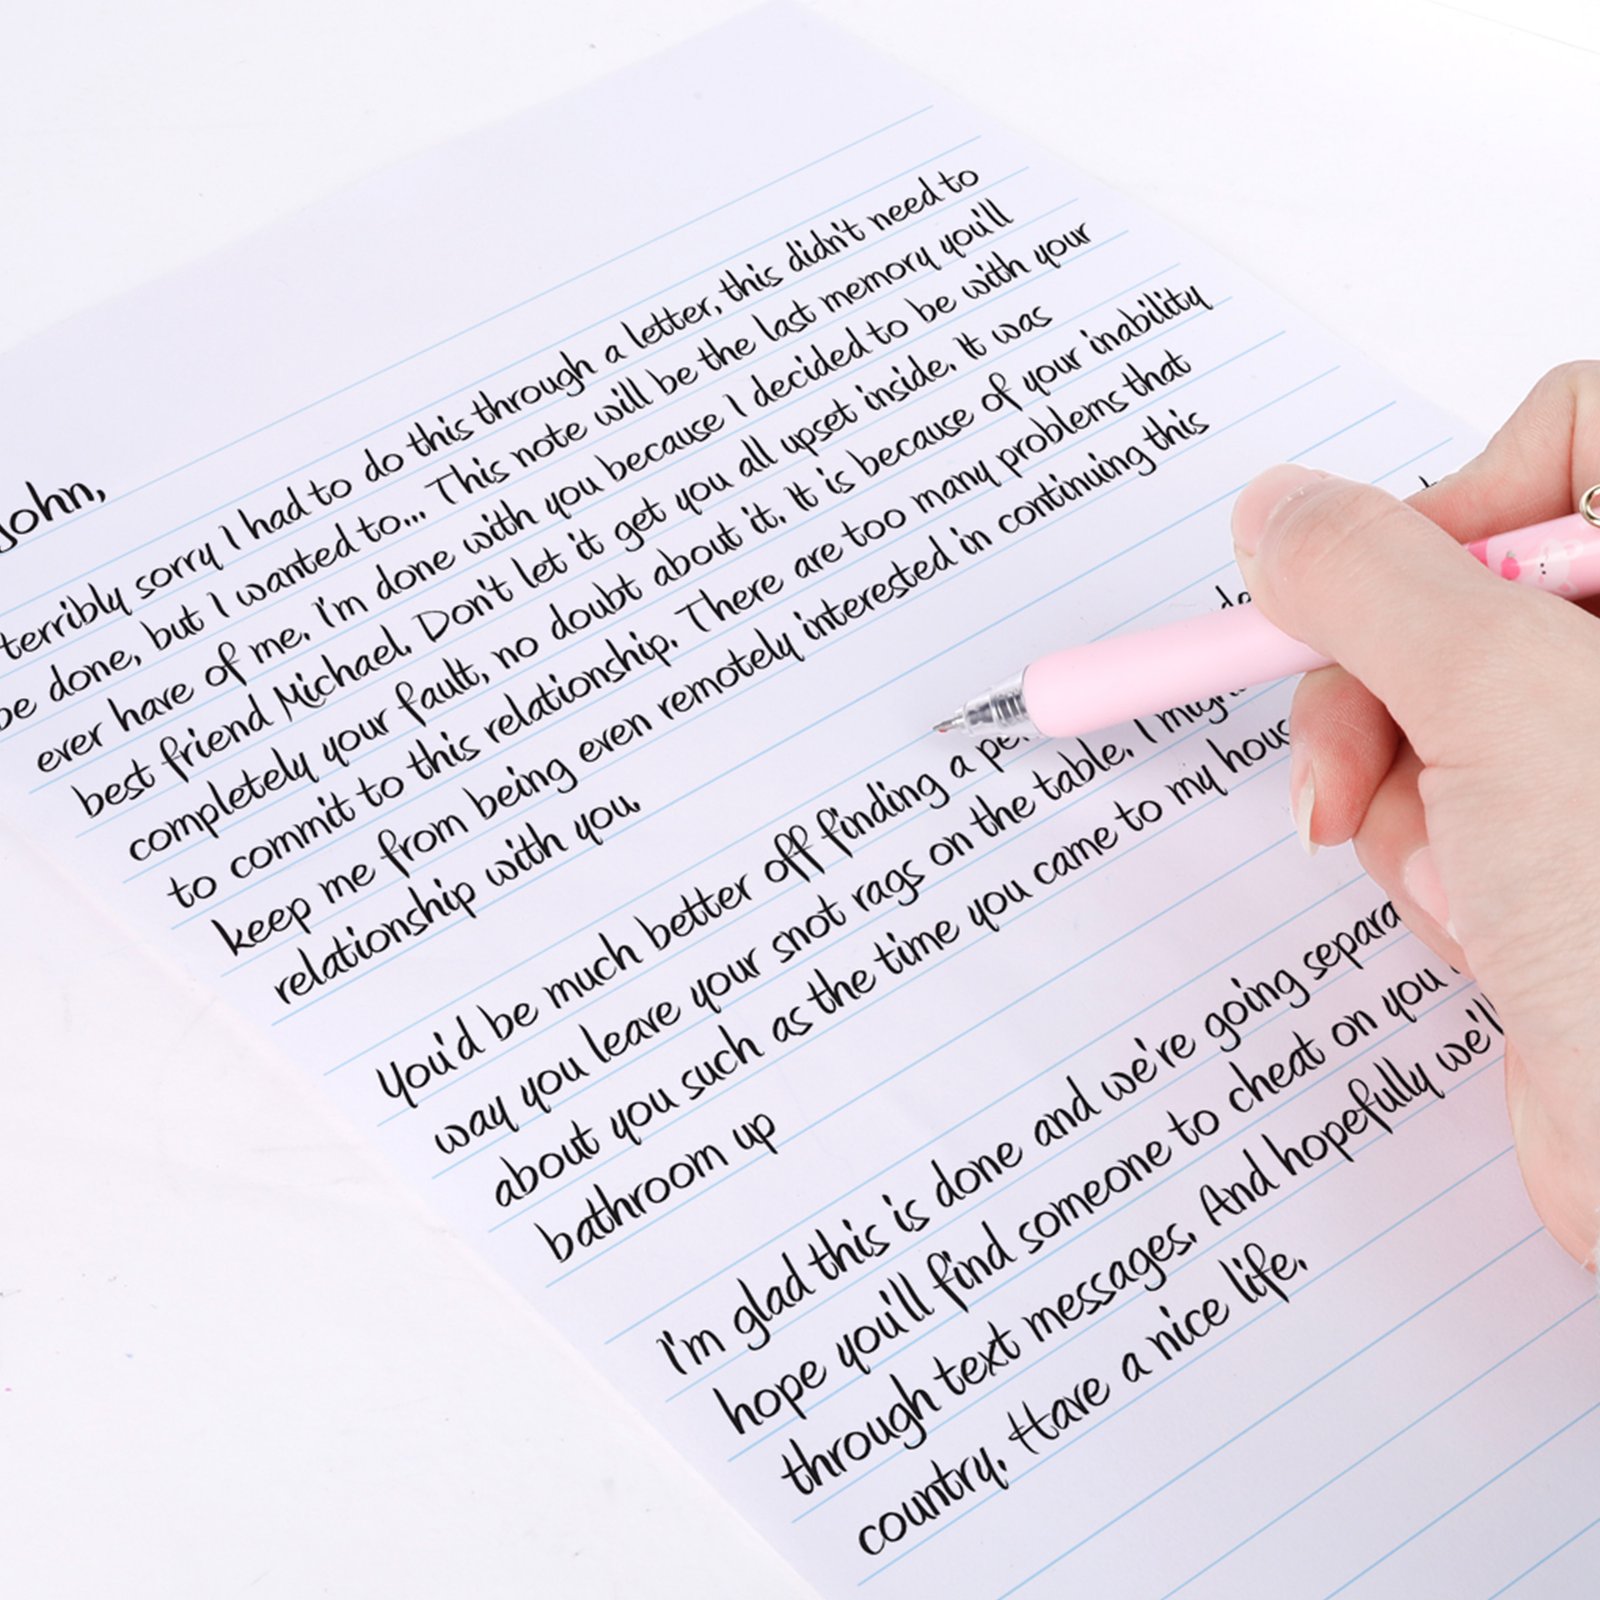 John,
terribly sorry I had to do this through a letter, this didn't need to
be done, but I wanted to... This note will be the last memory you'll
ever have of me. I'm done with you because I decided to be with your
best friend Michael. Don't let it get you all upset inside. It was
completely your fault, no doubt about it. It is because of your inability
to commit to this relationship. There are too many problems that
keep me from being even remotely interested in continuing this
relationship with you.
You'd be much better off finding a
way you leave your snot rags on the table. I
about you such as the time you came to my
bathroom up
I'm glad this is done and we're going
hope you'll find someone to cheat on you
through text messages. And hopefully we'll
country. Have a nice life.